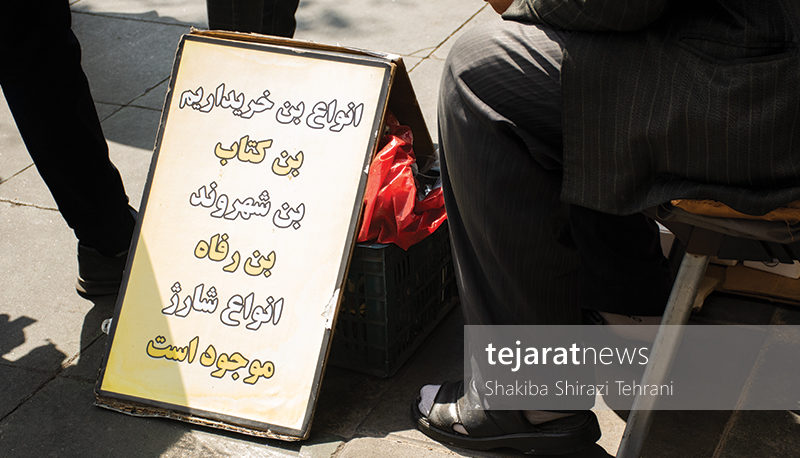 انواع بن خریداریم
بن کتاب
بن شهروند
بن رفاه
انواع شارژ
موجود است
tejaratnews
Shakiba Shirazi Tehrani